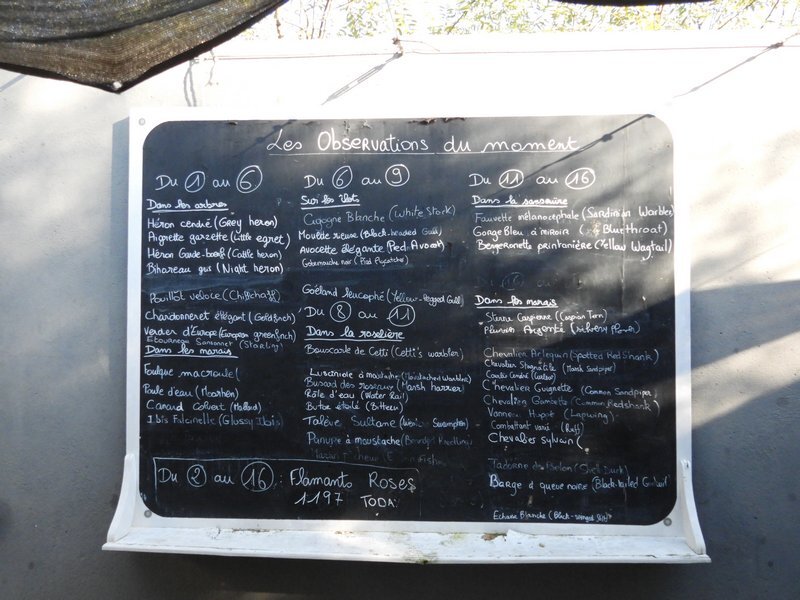 Les Observations du moment
Du 1 au 6
Dans les arbres
Héron cendré (Grey heron)
Aigrette garzette (Little egret)
Héron Garde-boeufs (Cattle heron)
Bihoreau gris (Night heron)
Pouillot véloce (Chiffchaff)
Chardonneret élégant (Goldfinch)
Verdier d'Europe (European greenfinch)
Etourneau Sansonnet (Starling)
Dans les marais
Foulque macroule (
Poule d'eau (Moorhen)
Canard colvert (Mallard)
Ibis Falcinelle (Glossy Ibis)
Du 6 au 9
Sur les îlots
Cigogne Blanche (White Stork)
Mouette rieuse (Black-headed Gull)
Avocette élégante (Pied Avocet)
Gobemouche noir (Pied Flycatcher)
Goéland leucophé (Yellow-legged Gull)
Du 8 au 11
Dans la roselière
Bouscarle de Cetti (Cetti's warbler)
Lusciniole à moustache (Moustached Warbler)
Busard des roseaux (Marsh harrier)
Râle d'eau (Water Rail)
Butor étoilé (Bittern)
Talève Sultane (
Panure à moustache (Bearded Reedling)
Du 11 au 16
Dans la sansouire
Fauvette mélanocephale (Sardinian Warbler)
Gorge Bleu à miroir (Bluethroat)
Bergeronette printanière (Yellow Wagtail)
Dans les marais
Sterne Caspienne (Caspian Tern)
Pluvier Argenté (
Chevalier Arlequin (Spotted Redshank)
Chevalier Stagnatile (Marsh Sandpiper)
Courlis Cendré (Curlew)
Chevalier Guignette (Common Sandpiper)
Chevalier Gambette (Common Redshank)
Vanneau Huppé (Lapwing)
Combattant varié (Ruff)
Chevalier Sylvain (
Tadorne de Belon (Shell Duck)
Barge à queue noire (Black-tailed Godwit)
Echasse Blanche (Black-winged Stilt)
Du 2 au 16 : Flamants Roses
1197 TODA